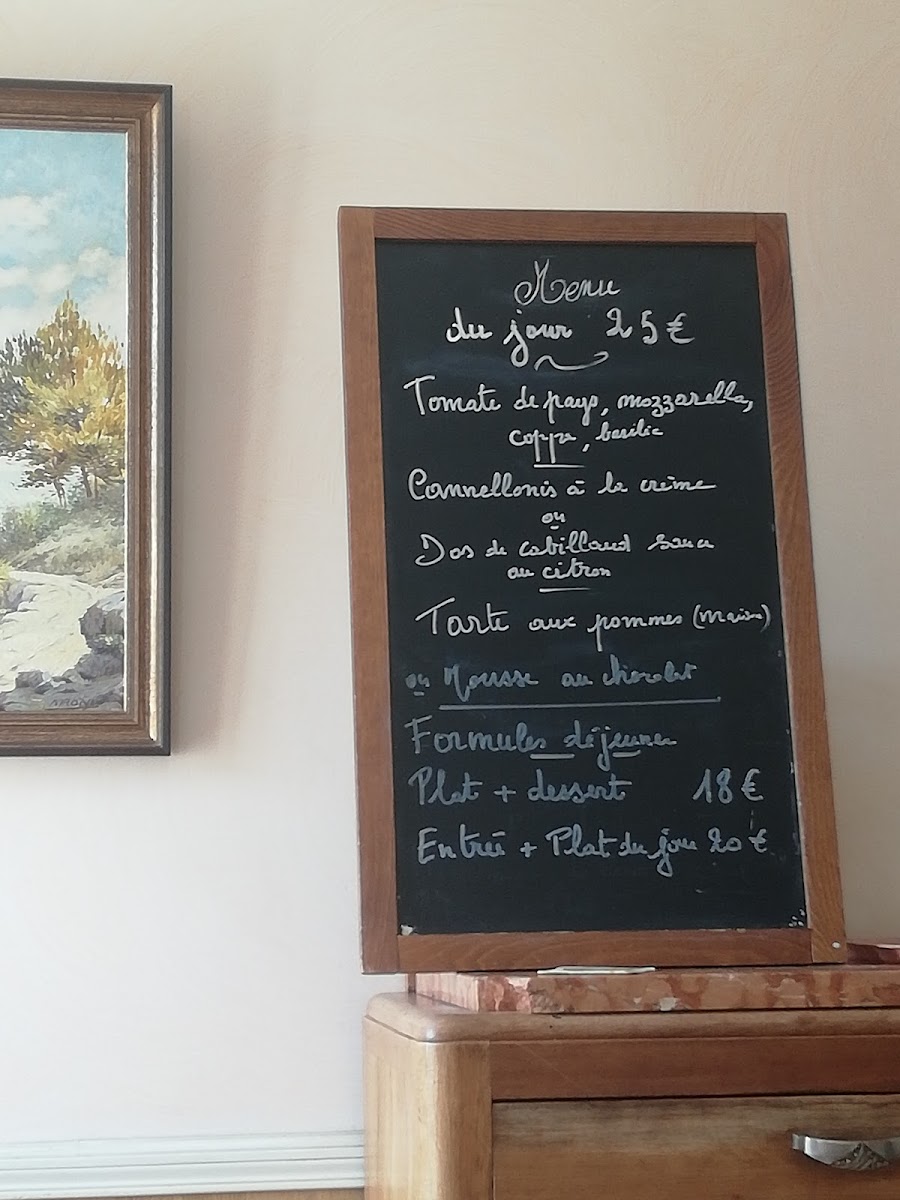 Menu
du jour 25€
Tomate de pays, mozzarella,
coppa, basilic
Cannellonis à la crème
ou
Dos de cabillaud sauce
au citron
Tarte aux pommes (maison)
ou Mousse au chocolat
Formules déjeuner
Plat + dessert 18€
Entrée + Plat du jour 20€